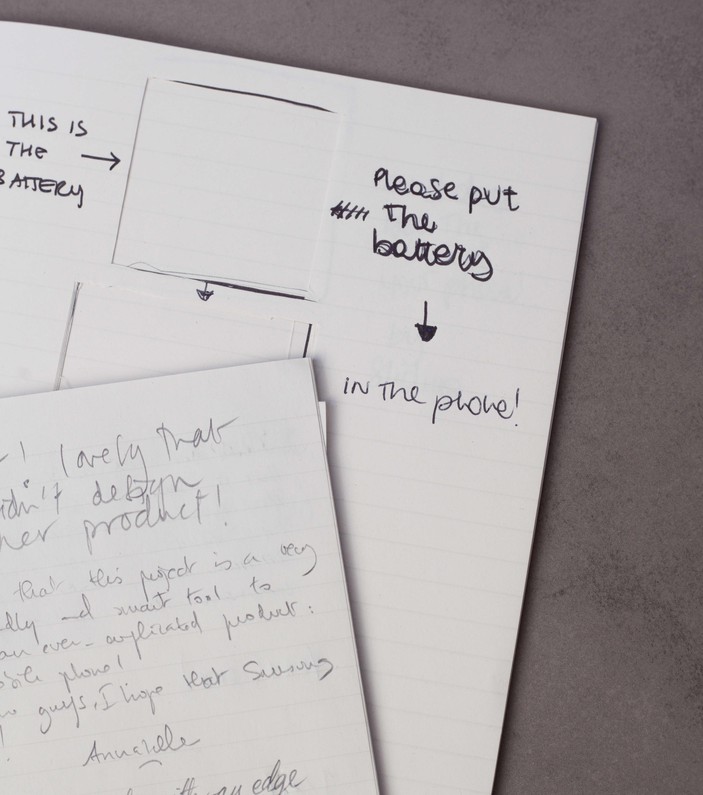 THIS IS
THE
BATTERY
Please put
the
battery
IN The phone!
! lovely that
didn't design
product!
that this project is a very
and smart tool to
an over-complicated product:
phone!
guys, I hope that Samsung
!
Annabelle
edge